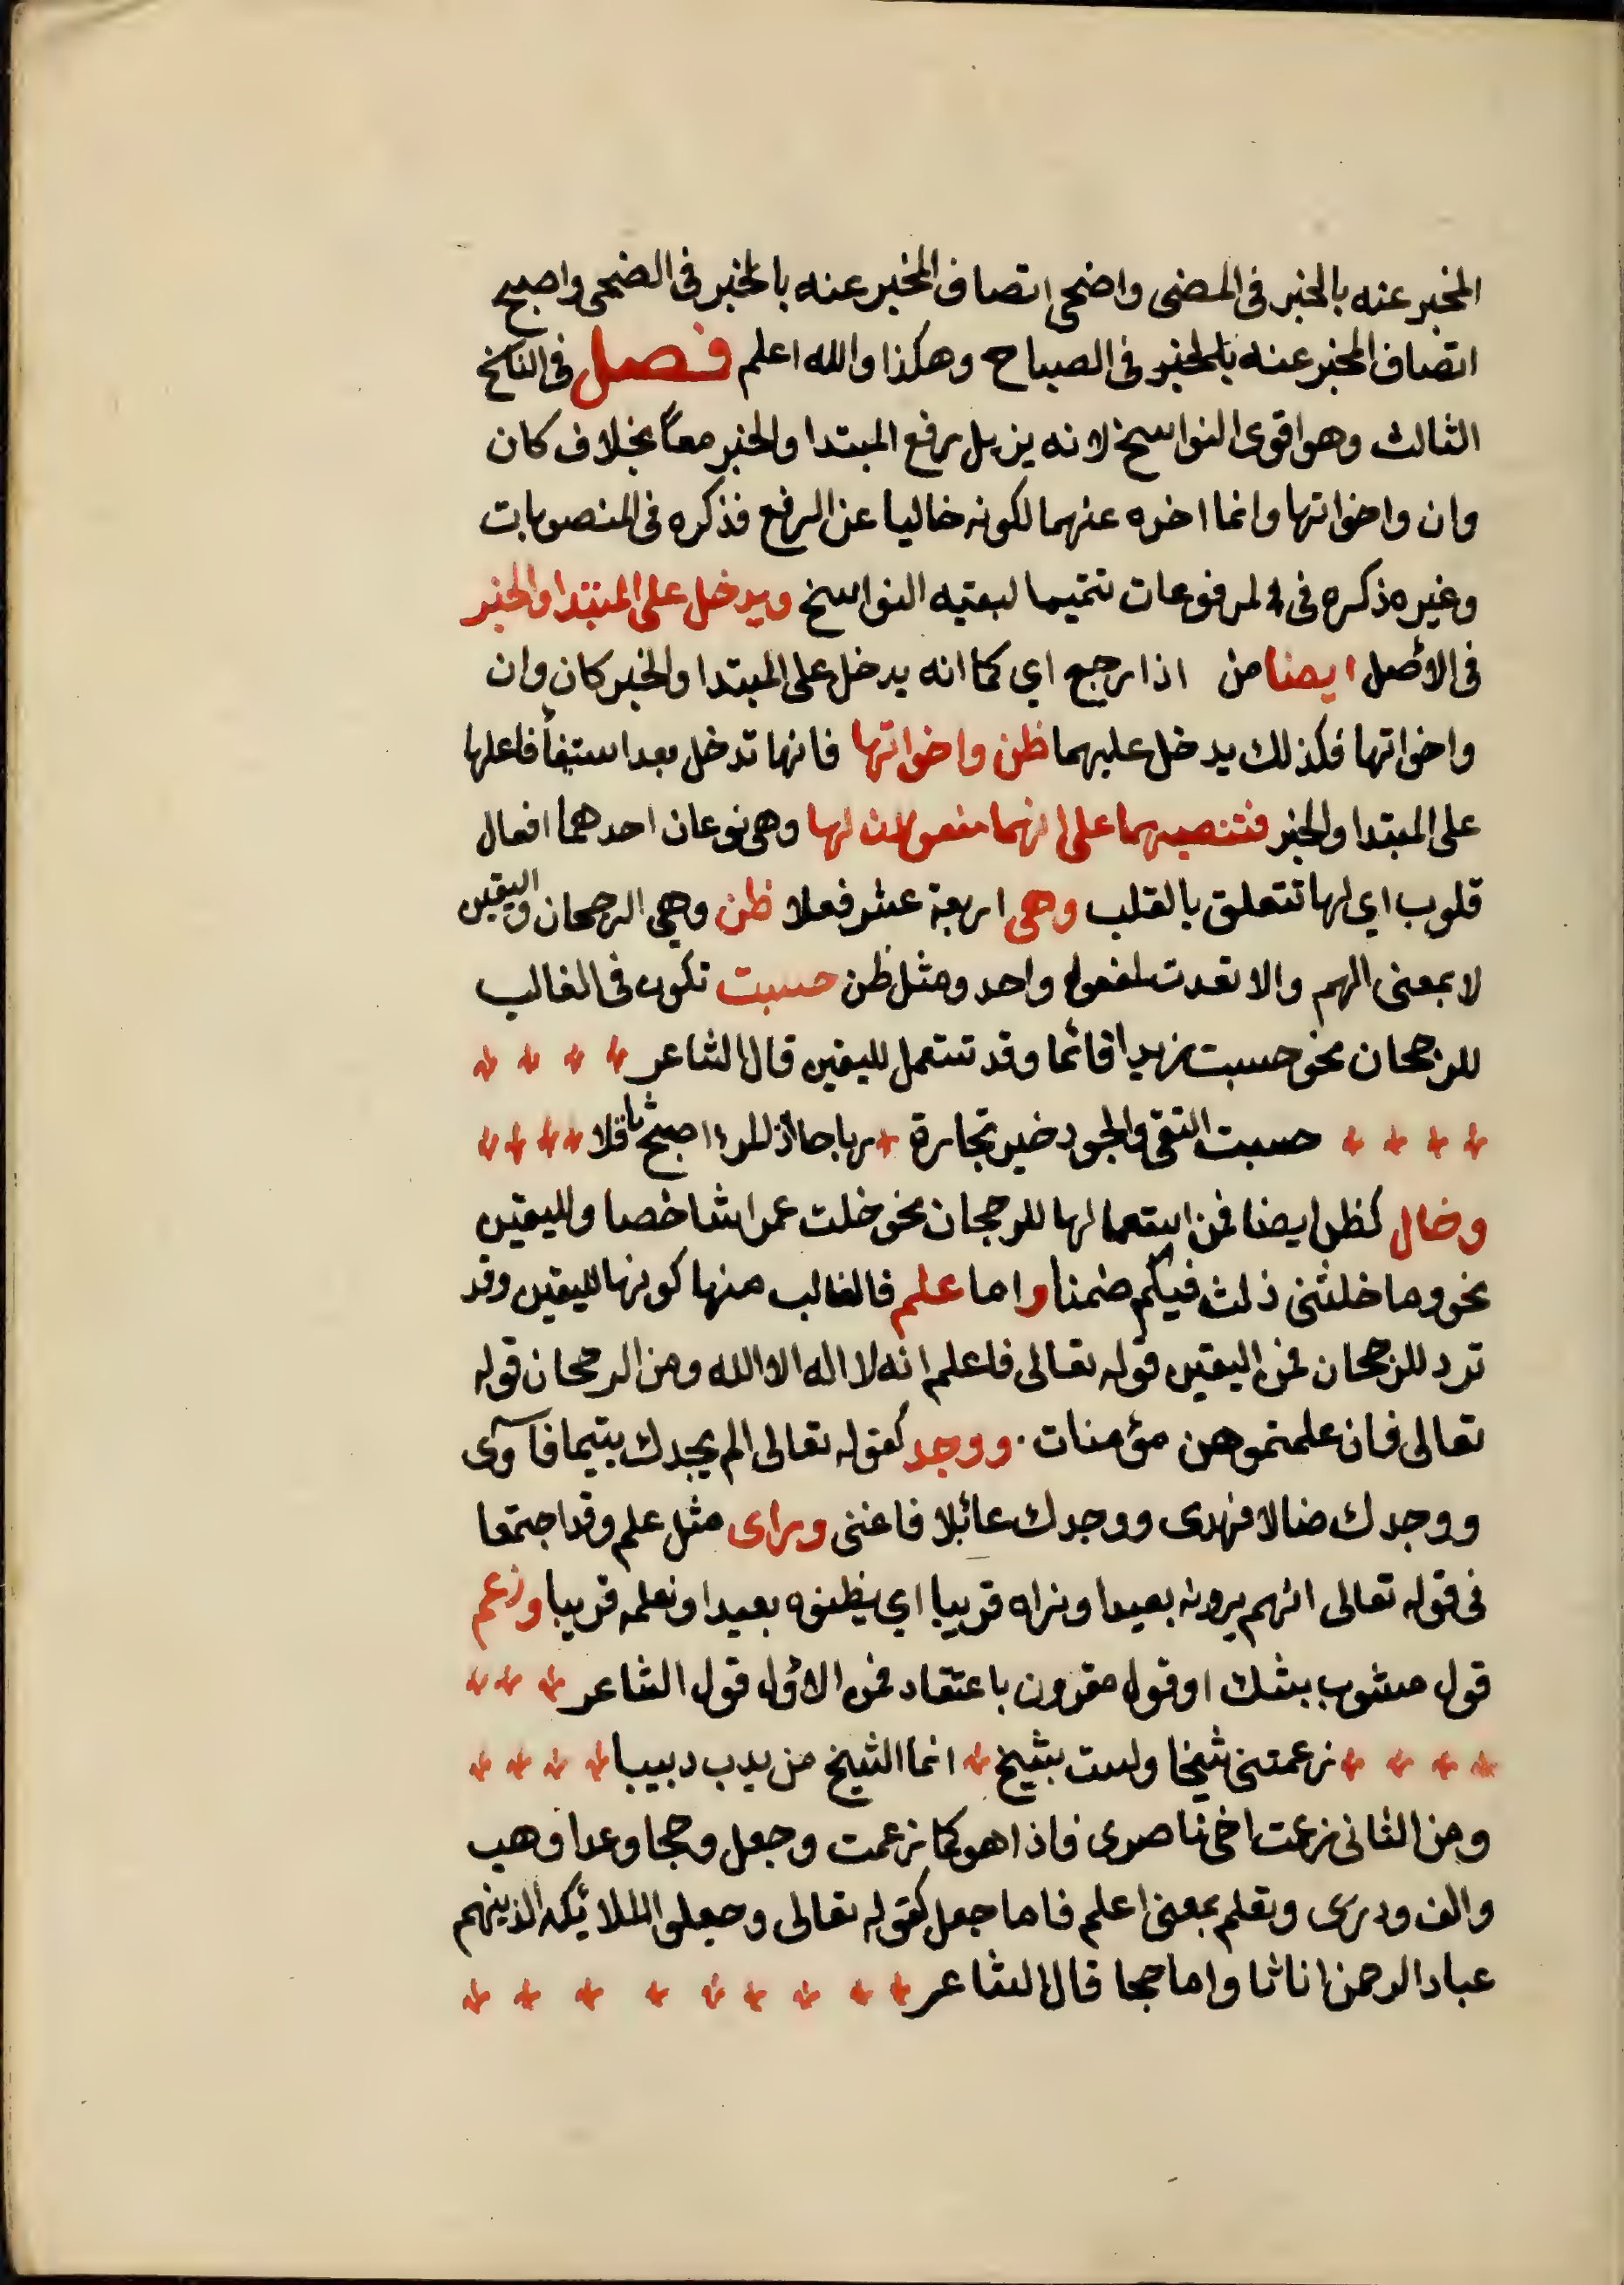 المخبر عنه بالخبر في المضى واضحى اتصاف المخبر عنه بالخبر في الضحى واصبح
اتصاف المخبر عنه بالخبر في الصباح وهكذا والله اعلم فصل في الناسخ
الثالث وهو اقوى النواسخ لانه يزيل رفع المبتدا والخبر معاً بخلاف كان
وان واخواتها وانما اخره عنهما لكونه خاليا عن الرفع فذكره في المنصوبات
وغيره ذكره في المرفوعات تتميما لبقيه النواسخ ويدخل على المبتدا والخبر
في الأصل ايضا من اذا رجع اي كما انه يدخل على المبتدا والخبر كان وان
واخواتها فكذلك يدخل عليهما ظن واخواتها فانها تدخل بعد استيفأ فاعلها
على المبتدا والخبر فتنصبهما على انهما مفعولان لها وهي نوعان احدهما افعال
قلوب اي لها تتعلق بالقلب وهي اربعة عشر فعلا ظن وهي الرجحان واليقين
لا بمعنى الهم والا تعدت لمفعول واحد ومثل ظن حسبت تكون في الغالب
للرجحان نحو حسبت زيدا قائما وقد تستعمل لليقين قال الشاعر
حسبت التقى والجود خير تجارة رباحا اذا المرء اصبح ثاقلا
وخال كظن ايضا فمن استعمالها للرجحان نحو خلت عمرا شاخصا ولليقين
نحو وما خلتني زلت فيكم ضمنا واما علم فالغالب منها كونها لليقين وقد
ترد للرجحان فمن اليقين قوله تعالى فاعلم انه لا اله الا الله ومن الرجحان قوله
تعالى فان علمتموهن مؤمنات . ووجد كقوله تعالى الم يجدك يتيما فآوى
ووجدك ضالا فهدى ووجدك عائلا فاغنى وراى مثل علم وقد اجتمعا
في قوله تعالى انهم يرونه بعيدا ونراه قريبا اي يظنونه بعيدا ونعلمه قريبا وزعم
قول مشوب بشك او قول مقرون باعتقاد فمن الأول قول الشاعر
زعمتني شيخا ولست بشيخ انما الشيخ من يدب دبيبا
ومن الثاني زعمت اخي ناصري فاذا هو كما زعمت وجعل وحجا وعدا وهب
والف ودرى وتعلم بمعنى اعلم فاما جعل كقوله تعالى وجعلوا الملائكة الذينهم
عباد الرحمن اناثا واما حجا قال الشاعر